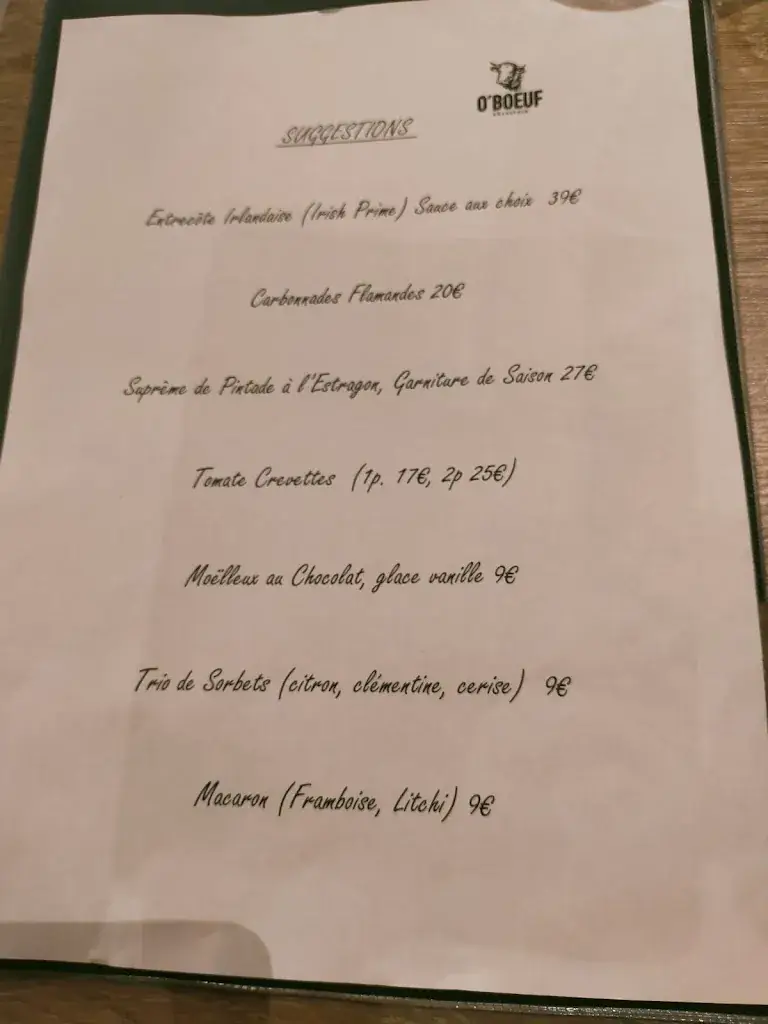 O'BOEUF
SUGGESTIONS
Entrecôte Irlandaise (Irish Prime) Sauce aux choix 39€
Carbonnades Flamandes 20€
Suprême de Pintade à l'Estragon, Garniture de Saison 27€
Tomate Crevettes (1p. 17€, 2p 25€)
Moëlleux au Chocolat, glace vanille 9€
Trio de Sorbets (citron, clémentine, cerise) 9€
Macaron (Framboise, Litchi) 9€